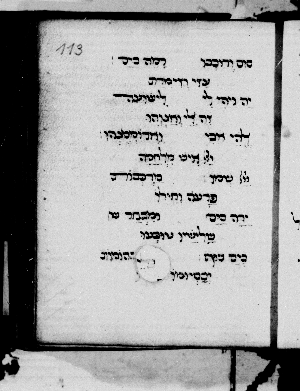 113
סוס ורוכבו רמה בים :
עזי וזימרת
יה ויהי לי לישועה
זה אלי ואנוהו
אלהי אבי וארוממנהו :
איש מלחמה
שמו : מרכבות
פרעה וחילו
ירה בים ומבחר ש
שלישיו טובעו
בים סוף : תהומות
יכסיומו